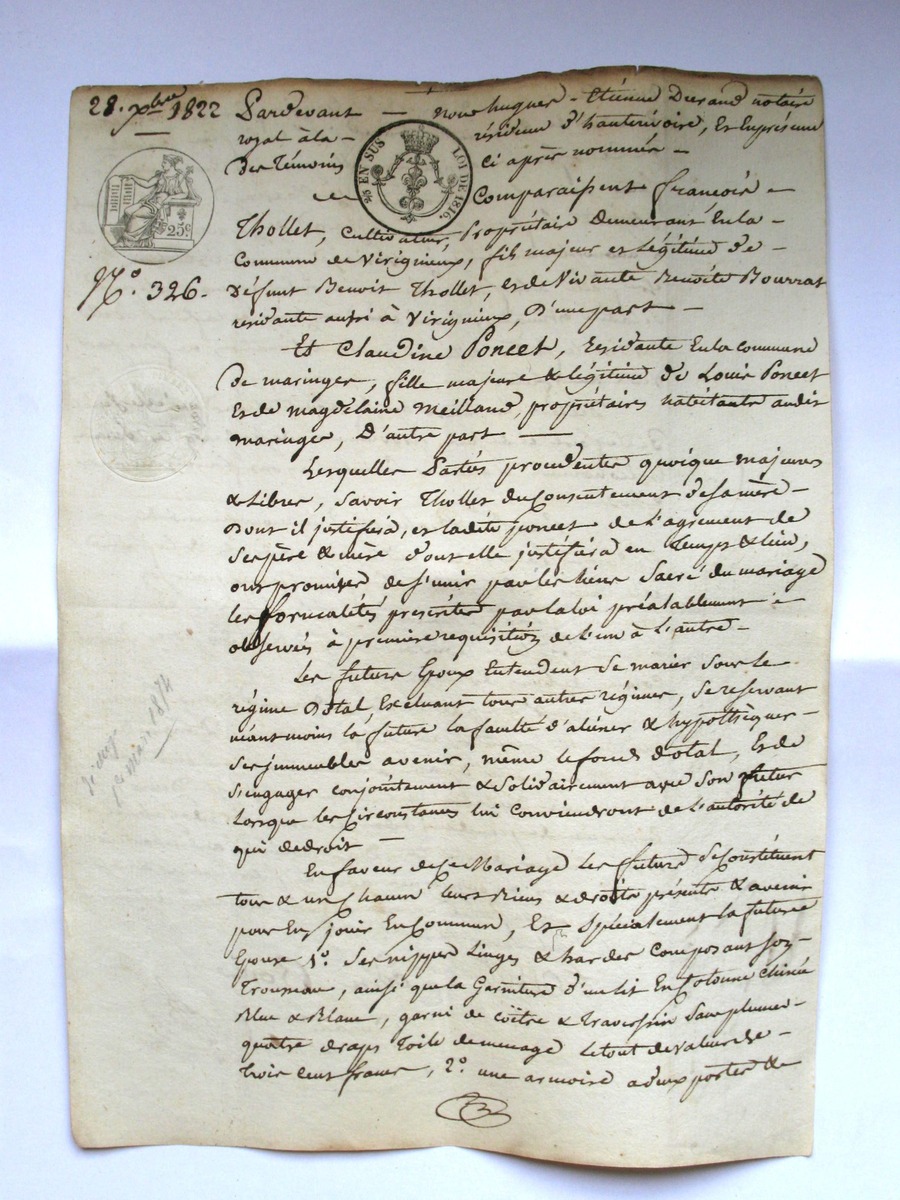 28. xbre 1822
Pardevant - nous hugues - Etienne Durand notaire
royal à la - résidence d'hauterivoire, Et En présence
des Témoins ci après nommés -
25 EN SUS LOI DE 1816
25c.
N°. 326.
Comparaissent françois -
Thollet, Cultivateur, Propriétaire Demeurant En la -
Commune de Virignieux, fils majeur et Légitime de -
Défunt Benoit Thollet, et de Vivante Benoîte Bourrat
résidante aussi à Virignieux, D'une part -
Et Claudine Poncet, résidante En la commune
De maringes, fille majeure & légitime de Louis Poncet
Et de Magdelaine Meilland, propriétaires habitants audit
maringes, D'autre part -
Lesquelles Parties procédantes quoique majeures
& Libres, Savoir Thollet du Consentement de sa mère -
Dont il justifiera, et ladite poncet de L'agrément de
Ses père & mère dont elle justifiera en Temps & lieu,
ont promises de s'unir par les liens Sacré du mariage
les formalités prescrites par la loi préalablement -
observées à première requisition de L'un à L'autre -
Les futurs Epoux Entendent Se marier Sous le -
régime Dotal Excluant tous autres régimes, Se réservant
néantmoins la future la faculté d'aliéner & hypothéquer -
Ses immeubles avenir, même le fonds dotal, Et de
S'engager conjointement & Solidairement avec Son futur
Lorsque les Circonstances lui Conviendront de L'autorité de
qui de droit -
En faveur de ce Mariage les futurs Se Constituent
tous & un Chacun leurs Biens & droits présents & avenir
pour En jouir En Commun, Et Spécialement la future
Epouse 1°. Ses nippes Linges & hardes Composant Son -
Trousseau, ainsi que la Garniture d'un lit En Cotonne Chinée
Bleu & Blanc, garni de coître & Traversin Sans plumes -
quatre draps Toile de menage le tout de valeur de -
trois cent francs, 2°. une armoire a deux portes de
1814